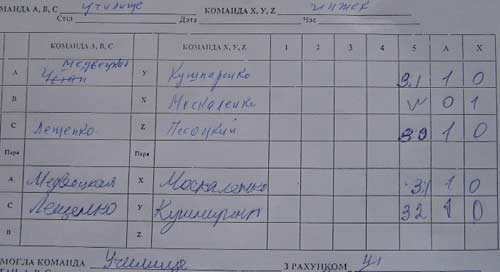 МАНДА А, В, С училище КОМАНДА Х, У, Z
Стіл Дата Час
КОМАНДА А, В, С КОМАНДА Х, У, Z 1 2 3 4 5 А Х
А Медвецкая У Кушнаренко 3:1 1 0
В Х Москаленко 0 1
С Лещенко Z Песоцкий 3:0 1 0
Пара
А Медвецкая Х Москаленко 3:1 1 0
С Лещенко У 3:2 1 0
В Z
МОГЛА КОМАНДА Училище З РАХУНКОМ 4:1